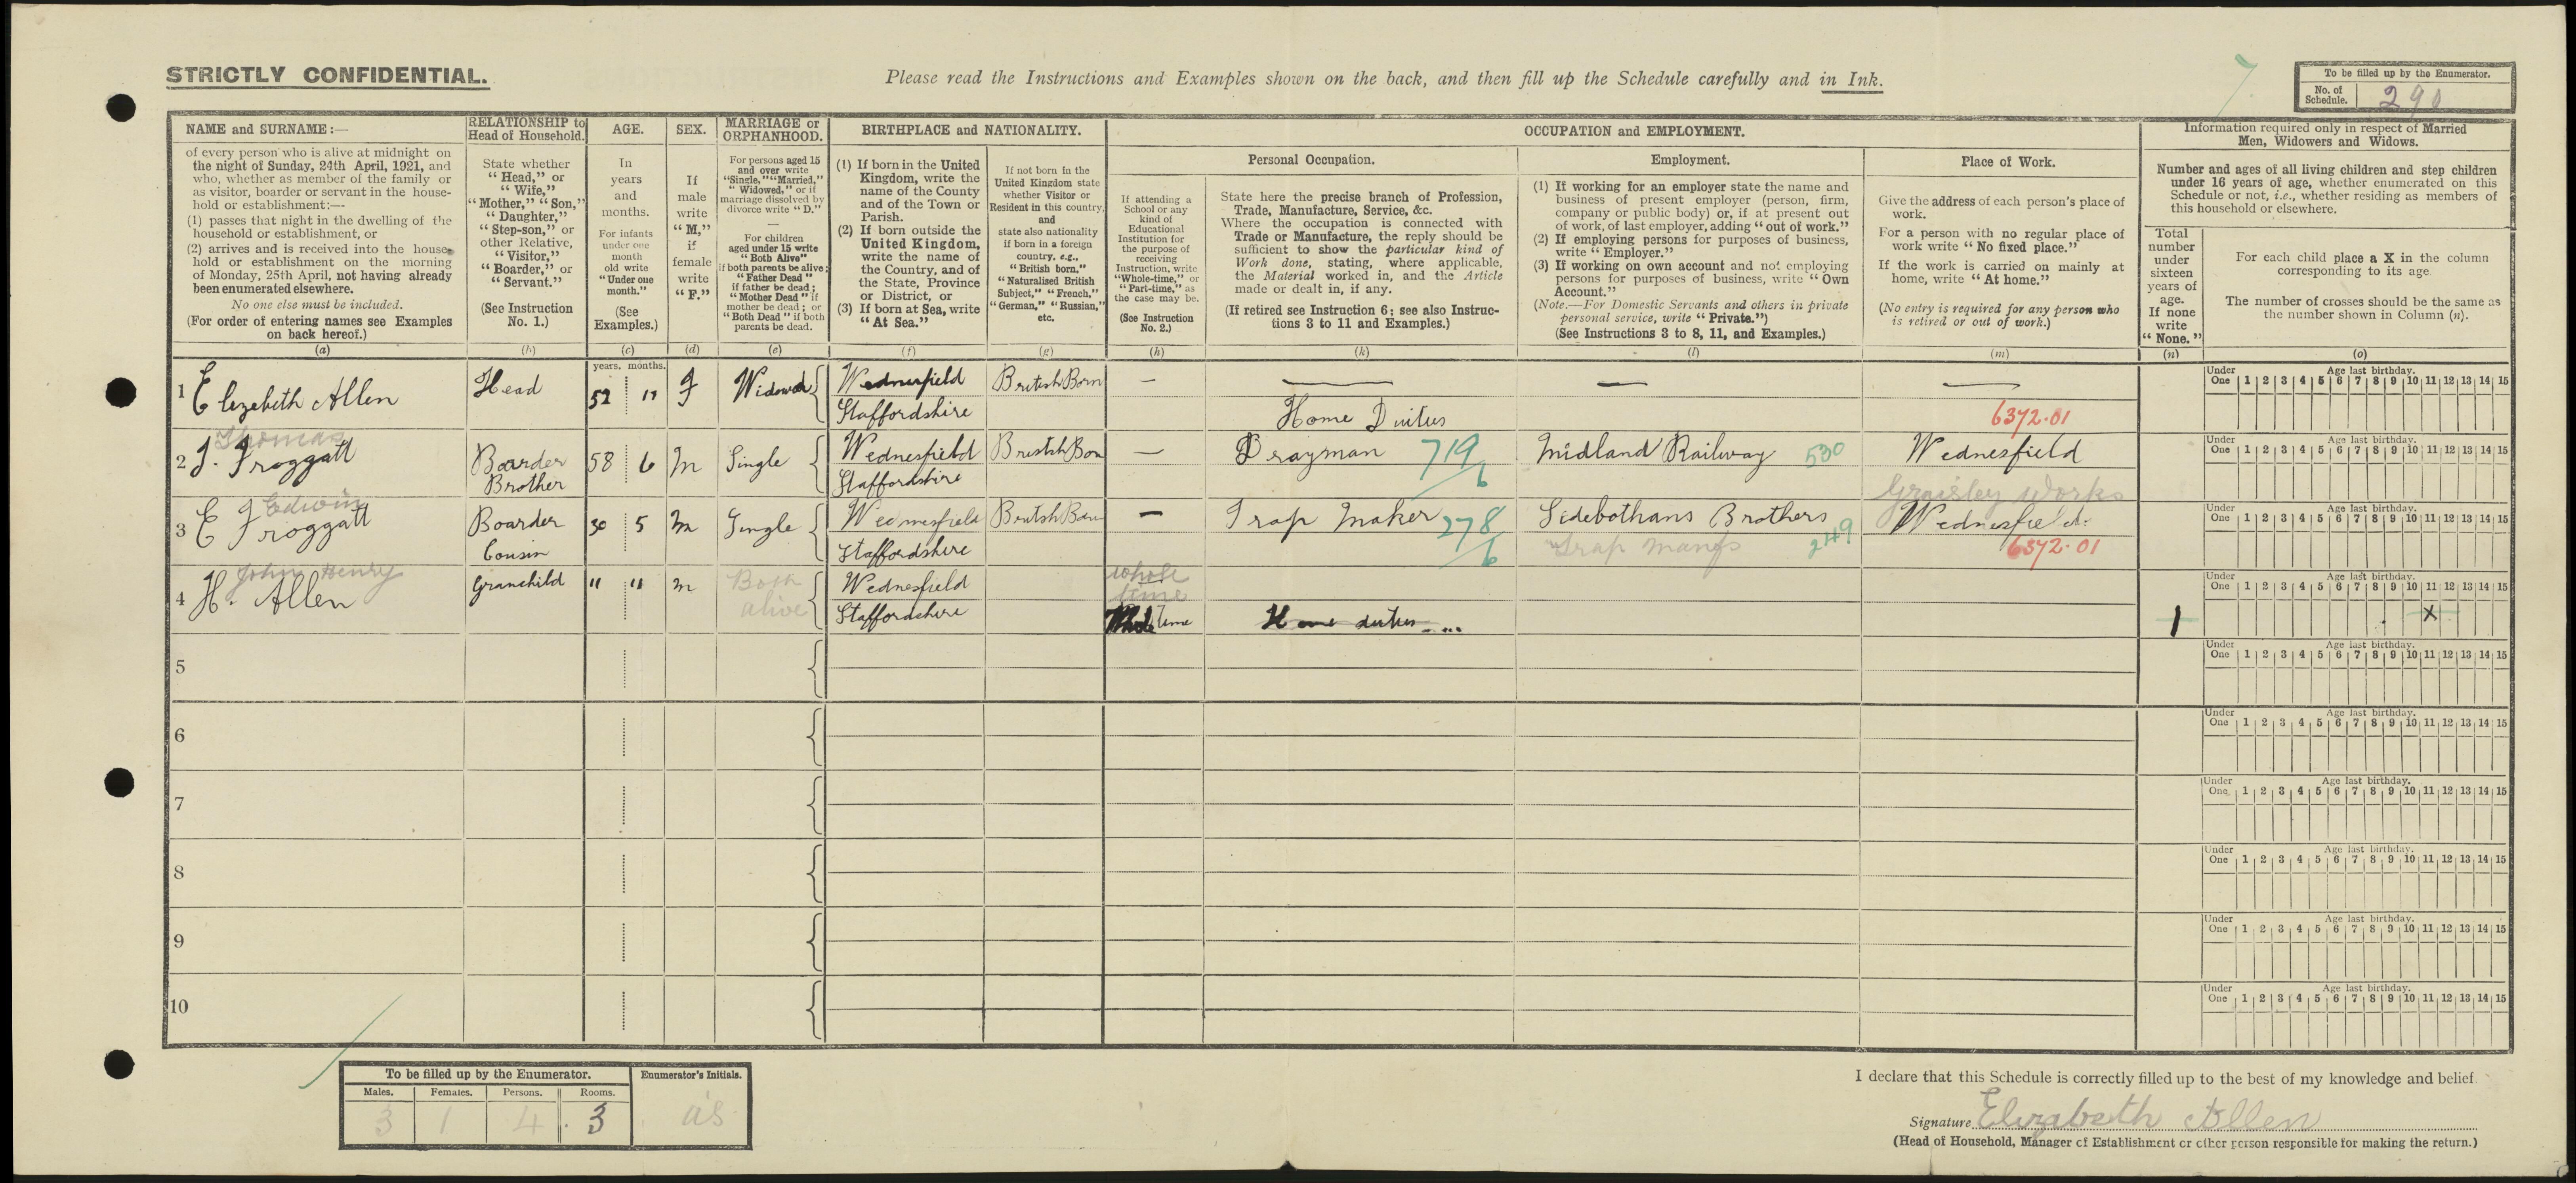 STRICTLY CONFIDENTIAL.
Please read the Instructions and Examples shown on the back, and then fill up the Schedule carefully and in Ink.
7
To be filled up by the Enumerator.
No. of Schedule. 290
NAME and SURNAME:—
of every person who is alive at midnight on
the night of Sunday, 24th April, 1921, and
who, whether as member of the family or
as visitor, boarder or servant in the house-
hold or establishment:—
(1) passes that night in the dwelling of the
household or establishment, or
(2) arrives and is received into the house-
hold or establishment on the morning
of Monday, 25th April, not having already
been enumerated elsewhere.
No one else must be included.
(For order of entering names see Examples
on back hereof.)
(a)
RELATIONSHIP to
Head of Household.
State whether
"Head," or
"Wife,"
"Mother," "Son,"
"Daughter,"
"Step-son," or
other Relative,
"Visitor,"
"Boarder," or
"Servant."
(See Instruction
No. 1.)
(b)
AGE.
In
years
and
months.
For infants
under one
month
old write
"Under one
month."
(See
Examples.)
(c)
SEX.
If
male
write
"M,"
if
female
write
"F."
(d)
MARRIAGE or
ORPHANHOOD.
For persons aged 15
and over write
"Single," "Married,"
"Widowed," or if
marriage dissolved by
divorce write "D."
For children
aged under 15 write
"Both Alive"
if both parents be alive;
"Father Dead"
if father be dead;
"Mother Dead" if
mother be dead; or
"Both Dead" if both
parents be dead.
(e)
BIRTHPLACE and NATIONALITY.
(1) If born in the United
Kingdom, write the
name of the County
and of the Town or
Parish.
(2) If born outside the
United Kingdom,
write the name of
the Country, and of
the State, Province
or District, or
(3) If born at Sea, write
"At Sea."
(f)
If not born in the
United Kingdom state
whether Visitor or
Resident in this country,
and
state also nationality
if born in a foreign
country, e.g.,
"British born."
"Naturalised British
Subject," "French,"
"German," "Russian,"
etc.
(g)
OCCUPATION and EMPLOYMENT.
If attending a
School or any
kind of
Educational
Institution for
the purpose of
receiving
Instruction, write
"Whole-time," or
"Part-time," as
the case may be.
(See Instruction
No. 2.)
(h)
Personal Occupation.
State here the precise branch of Profession,
Trade, Manufacture, Service, &c.
Where the occupation is connected with
Trade or Manufacture, the reply should be
sufficient to show the particular kind of
Work done, stating, where applicable,
the Material worked in, and the Article
made or dealt in, if any.
(If retired see Instruction 6; see also Instruc-
tions 3 to 11 and Examples.)
(k)
Employment.
(1) If working for an employer state the name and
business of present employer (person, firm,
company or public body) or, if at present out
of work, of last employer, adding "out of work."
(2) If employing persons for purposes of business,
write "Employer."
(3) If working on own account and not employing
persons for purposes of business, write "Own
Account."
(Note.—For Domestic Servants and others in private
personal service, write "Private.")
(See Instructions 3 to 8, 11, and Examples.)
(l)
Place of Work.
Give the address of each person's place of
work.
For a person with no regular place of
work write "No fixed place."
If the work is carried on mainly at
home, write "At home."
(No entry is required for any person who
is retired or out of work.)
(m)
Information required only in respect of Married
Men, Widowers and Widows.
Number and ages of all living children and step children
under 16 years of age, whether enumerated on this
Schedule or not, i.e., whether residing as members of
this household or elsewhere.
Total
number
under
sixteen
years of
age.
If none
write
"None."
(n)
For each child place a X in the column
corresponding to its age
The number of crosses should be the same as
the number shown in Column (n).
(o)
years. months.
1 Elezebeth Allen Head 52 11 F Widowed Wednesfield British Born — — — —
Staffordshire Home Duites 6372.01
Under One Age last birthday. 1 2 3 4 5 6 7 8 9 10 11 12 13 14 15
Thomas
2 J. Froggatt Boarder 58 6 M Single Wednesfield Bristsh Bon — Drayman 719/6 Midland Railway 530 Wednesfield
Brother Staffordshire
Under One Age last birthday. 1 2 3 4 5 6 7 8 9 10 11 12 13 14 15
Edwin Graisley Works
3 E Froggatt Boarder 30 5 M Single Wednesfield British Born — Trap Maker 278/6 Sidebothans Brothers Wednesfield
Cousin Staffordshire Trap Manfs 249 6372.01
Under One Age last birthday. 1 2 3 4 5 6 7 8 9 10 11 12 13 14 15
John Henry
4 H. Allen Granchild 11 11 M Both alive Wednesfield whole time
Staffordshire Whole Time Home duties 1 X
Under One Age last birthday. 1 2 3 4 5 6 7 8 9 10 11 12 13 14 15
5
Under One Age last birthday. 1 2 3 4 5 6 7 8 9 10 11 12 13 14 15
6
Under One Age last birthday. 1 2 3 4 5 6 7 8 9 10 11 12 13 14 15
7
Under One Age last birthday. 1 2 3 4 5 6 7 8 9 10 11 12 13 14 15
8
Under One Age last birthday. 1 2 3 4 5 6 7 8 9 10 11 12 13 14 15
9
Under One Age last birthday. 1 2 3 4 5 6 7 8 9 10 11 12 13 14 15
10
Under One Age last birthday. 1 2 3 4 5 6 7 8 9 10 11 12 13 14 15
To be filled up by the Enumerator.
Males. Females. Persons. Rooms.
3 1 4 3
Enumerator's Initials.
as
I declare that this Schedule is correctly filled up to the best of my knowledge and belief
Signature Elizabeth Allen
(Head of Household, Manager of Establishment or other person responsible for making the return.)